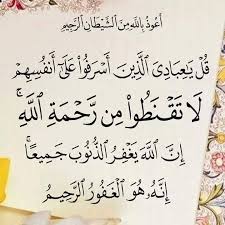 أَعُوذُ بِاللَّهِ مِنَ الشَّيْطَانِ الرَّجِيمِ
قُلْ يَٰعِبَادِىَ ٱلَّذِينَ أَسْرَفُوا۟ عَلَىٰٓ أَنفُسِهِمْ
لَا تَقْنَطُوا۟ مِن رَّحْمَةِ ٱللَّهِ ۚ
إِنَّ ٱللَّهَ يَغْفِرُ ٱلذُّنُوبَ جَمِيعًا ۚ
إِنَّهُۥ هُوَ ٱلْغَفُورُ ٱلرَّحِيمُ